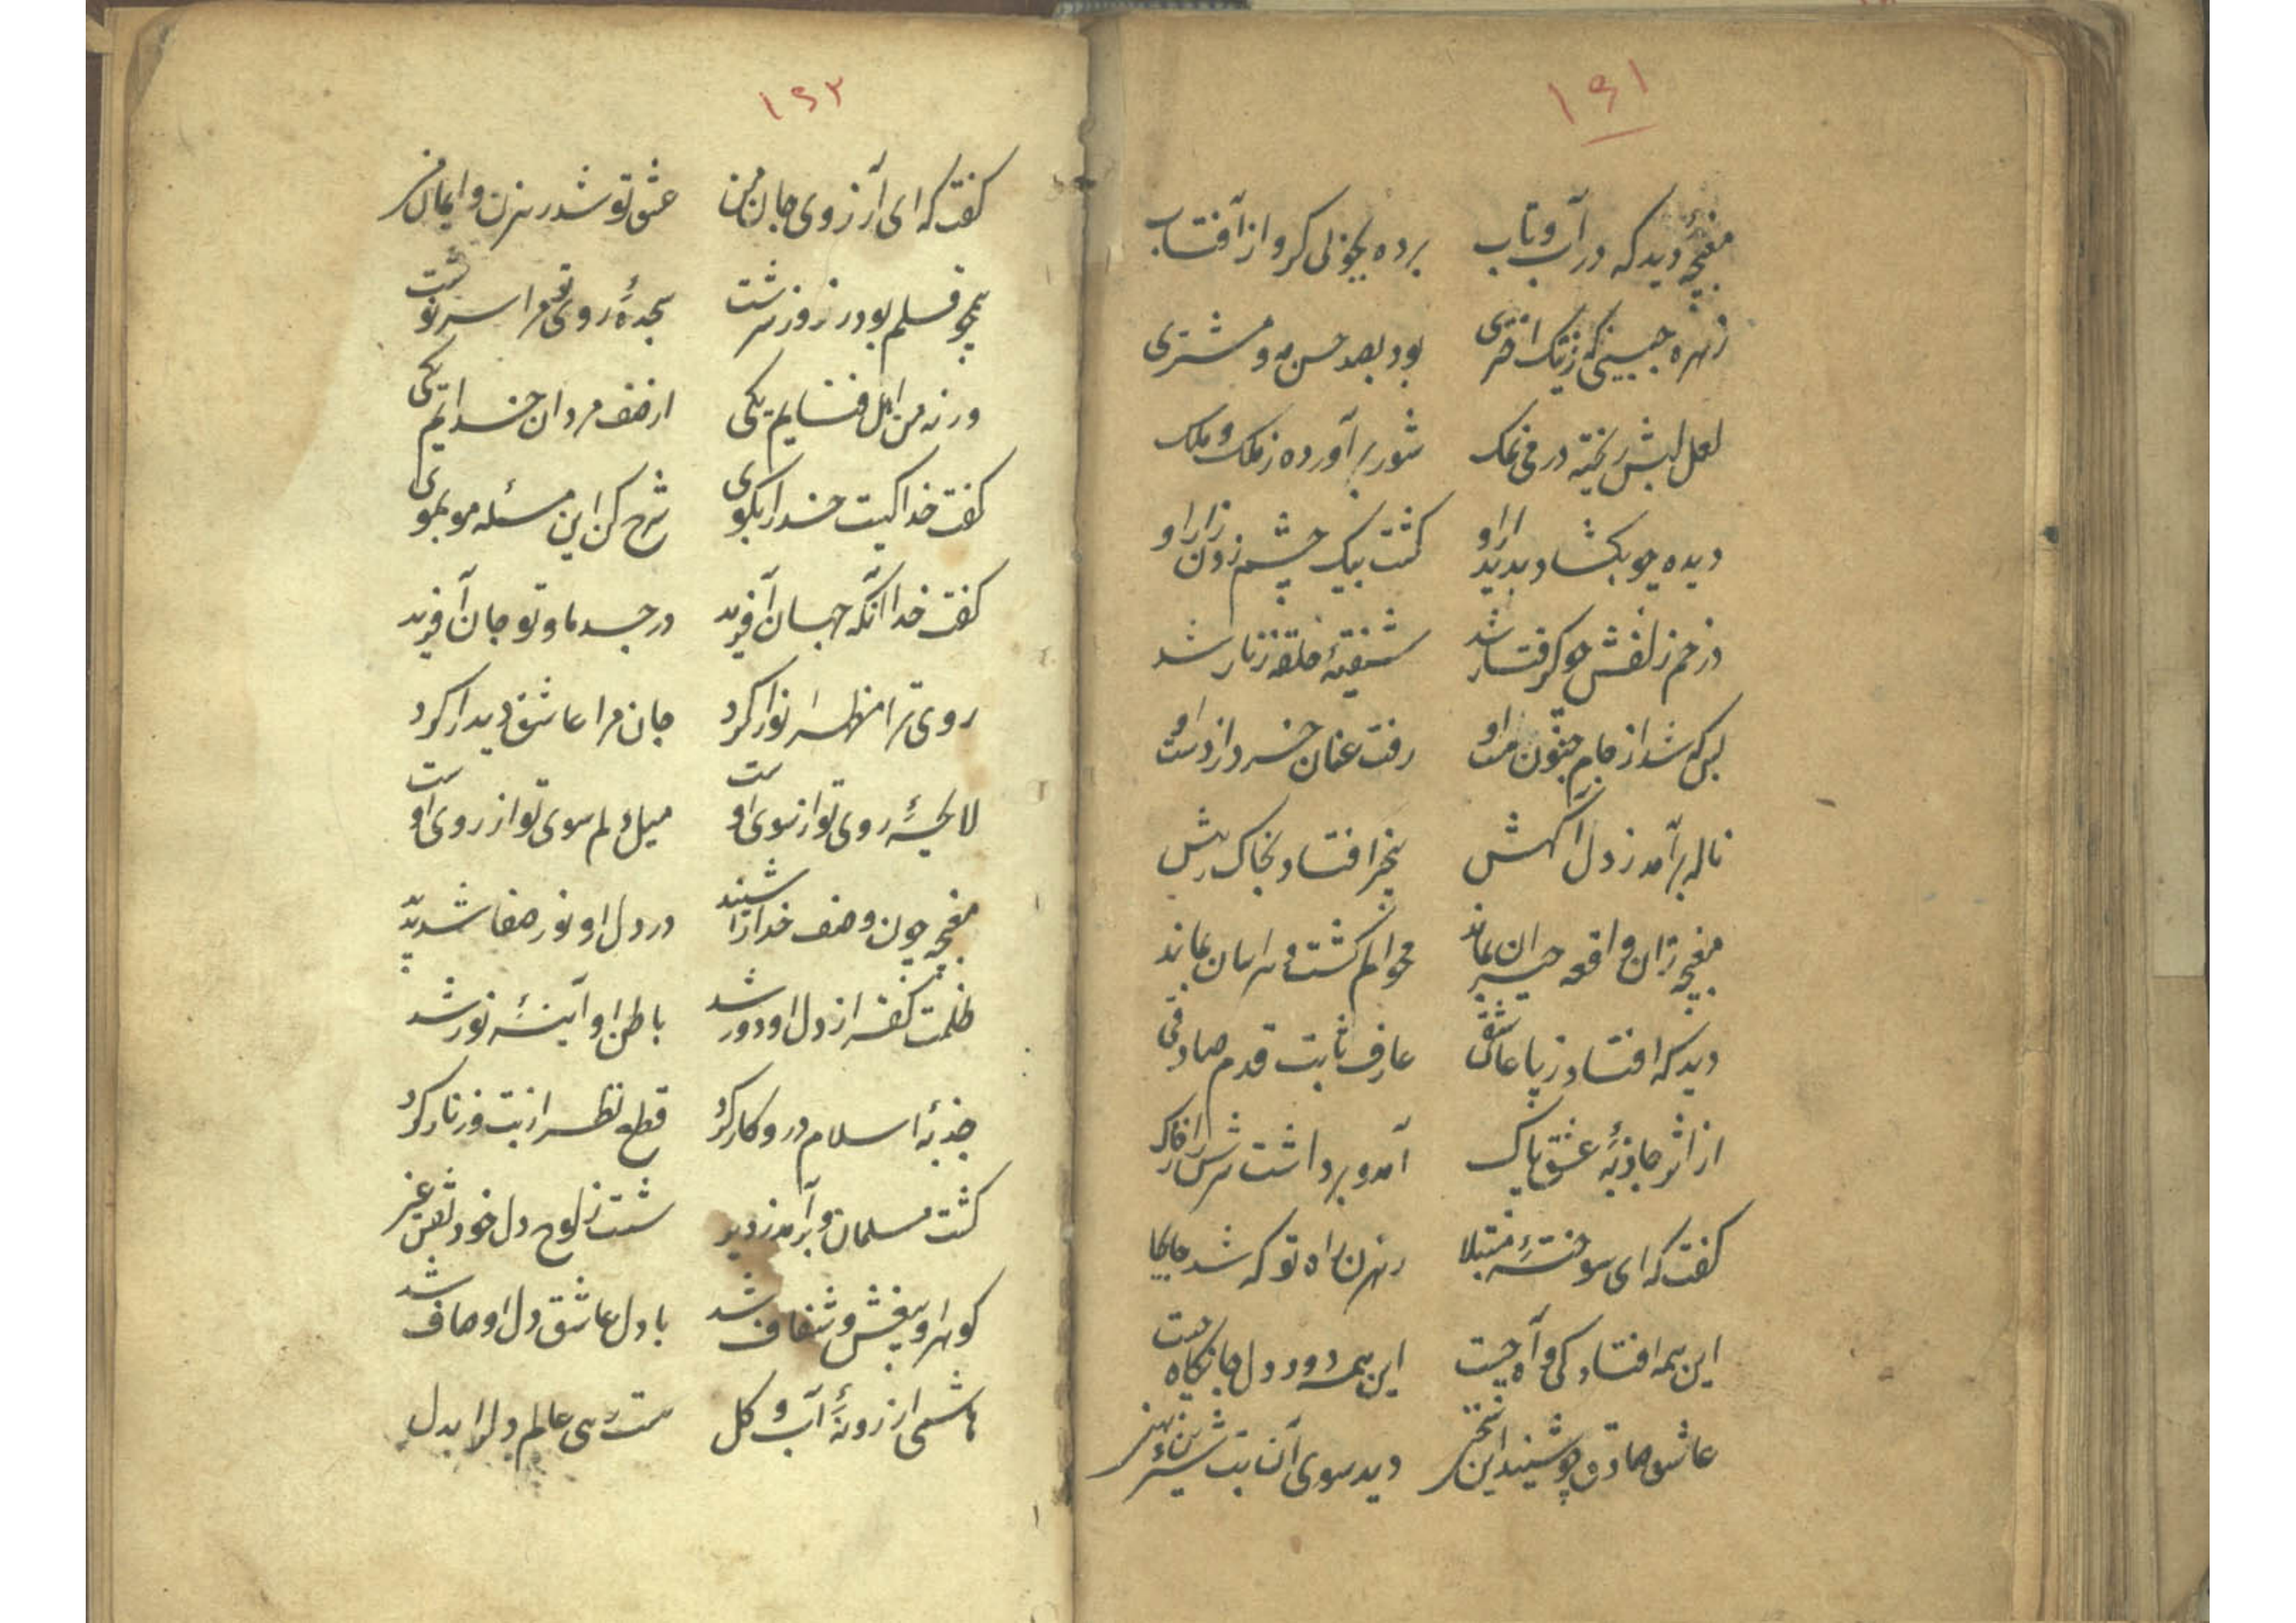 ۱۶۱
مغبچهٔ دید که در آب و تاب برده بخوبی کرو از آفتاب
زهره جبینی که ز نیک اختری بود بصد حسن مه و مشتری
لعل لبش ریخته در می نمک شور برآورده ز ملک و ملک
دیده چو بکشاد بدیدار او کشت بیک چشم زدن زار او
در خم زلفش چو کرفتار شد شیفتهٔ حلقهٔ زنار شد
بسکه شد از جام جنون مست او رفت عنان خرد از دست او
ناله برآمد ز دل آکهش بیخبر افتاد بخاک رهش
مغبچه زان واقعه حیران بماند محو الم کشت و هراسان بماند
دید که افتاد ز پا عاشقی عارف ثابت قدم صادقی
از اثر جاذبهٔ عشق پاک آمد و برداشت سرش را ز خاک
کفت که ای سوختهٔ مبتلا رهزن راه تو که شد
این همه افتادکی و آه چیست این همه درد دل جانکاه چیست
عاشق صادق چو شنید این سخن دید سوی آن بت شیرین
۱۶۲
کفت که ای آرزوی جان من عشق تو شد رهزن و ایمان من
همچو قلم بود ز روز نرشت سجدهٔ روی تو مرا سرنوشت
ورنه من اهل فنایم یکی از صف مردان خدایم یکی
کفت خدا کیست خدا را بکوی شرح کن این مسئله مو بموی
کفت خدا آنکه جهان آفرید در جسد ما و تو جان آفرید
روی ترا مظهر انوار کرد جان مرا عاشق دیدار کرد
لایحهٔ روی تو از سوی اوست میل دلم سوی تو از روی اوست
مغبچه چون وصف خدا را شنید در دل او نور صفا شد پدید
ظلمت کفر از دل او دور شد باطن او آینهٔ نور شد
جذبهٔ اسلام درو کار کرد قطع نظر از بت و زنار کرد
کشت مسلمان و برآمد ز دیر شست ز لوح دل خود نقش غیر
کوهر او بیغش و شفاف شد با دل عاشق دل او صاف شد
هاشمی ار زونهٔ آب و کل عالم دلرا بدل